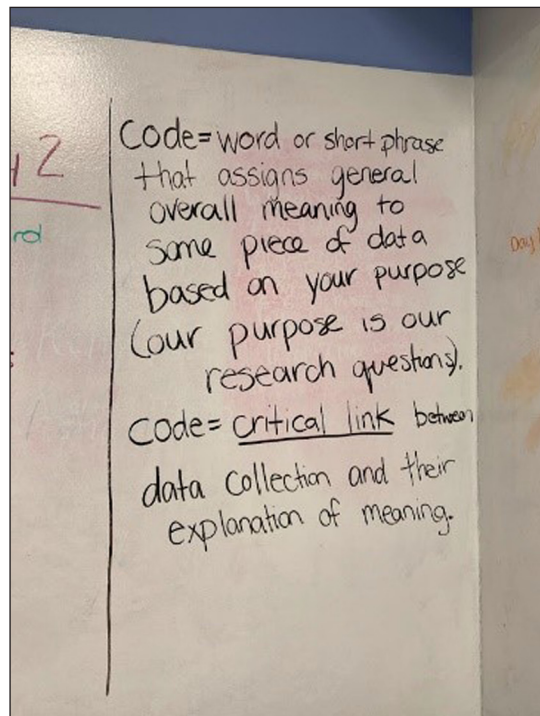 2
rd
Code= word or short phrase
that assigns general
overall meaning to
some piece of data
based on your purpose
(our purpose is our
research questions).
Code= critical link between
data collection and their
explanation of meaning.
Day